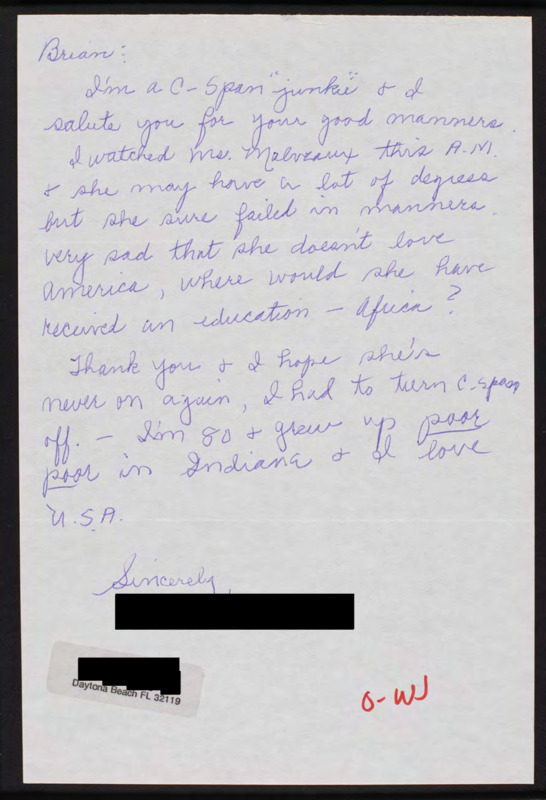 Brian:
I'm a C-Span "junkie" & I
salute you for your good manners.
I watched Ms. Malveaux this A.M.
& she may have a lot of degress
but she sure failed in manners.
very sad that she doesn't love
America, where would she have
received an education – Africa?
Thank you & I hope she's
never on again, I had to turn C-Span
off. – I'm 80 & grew up poor
poor in Indiana & I love
U.S.A.
Sincerely,
Daytona Beach FL 32119
O-WJ